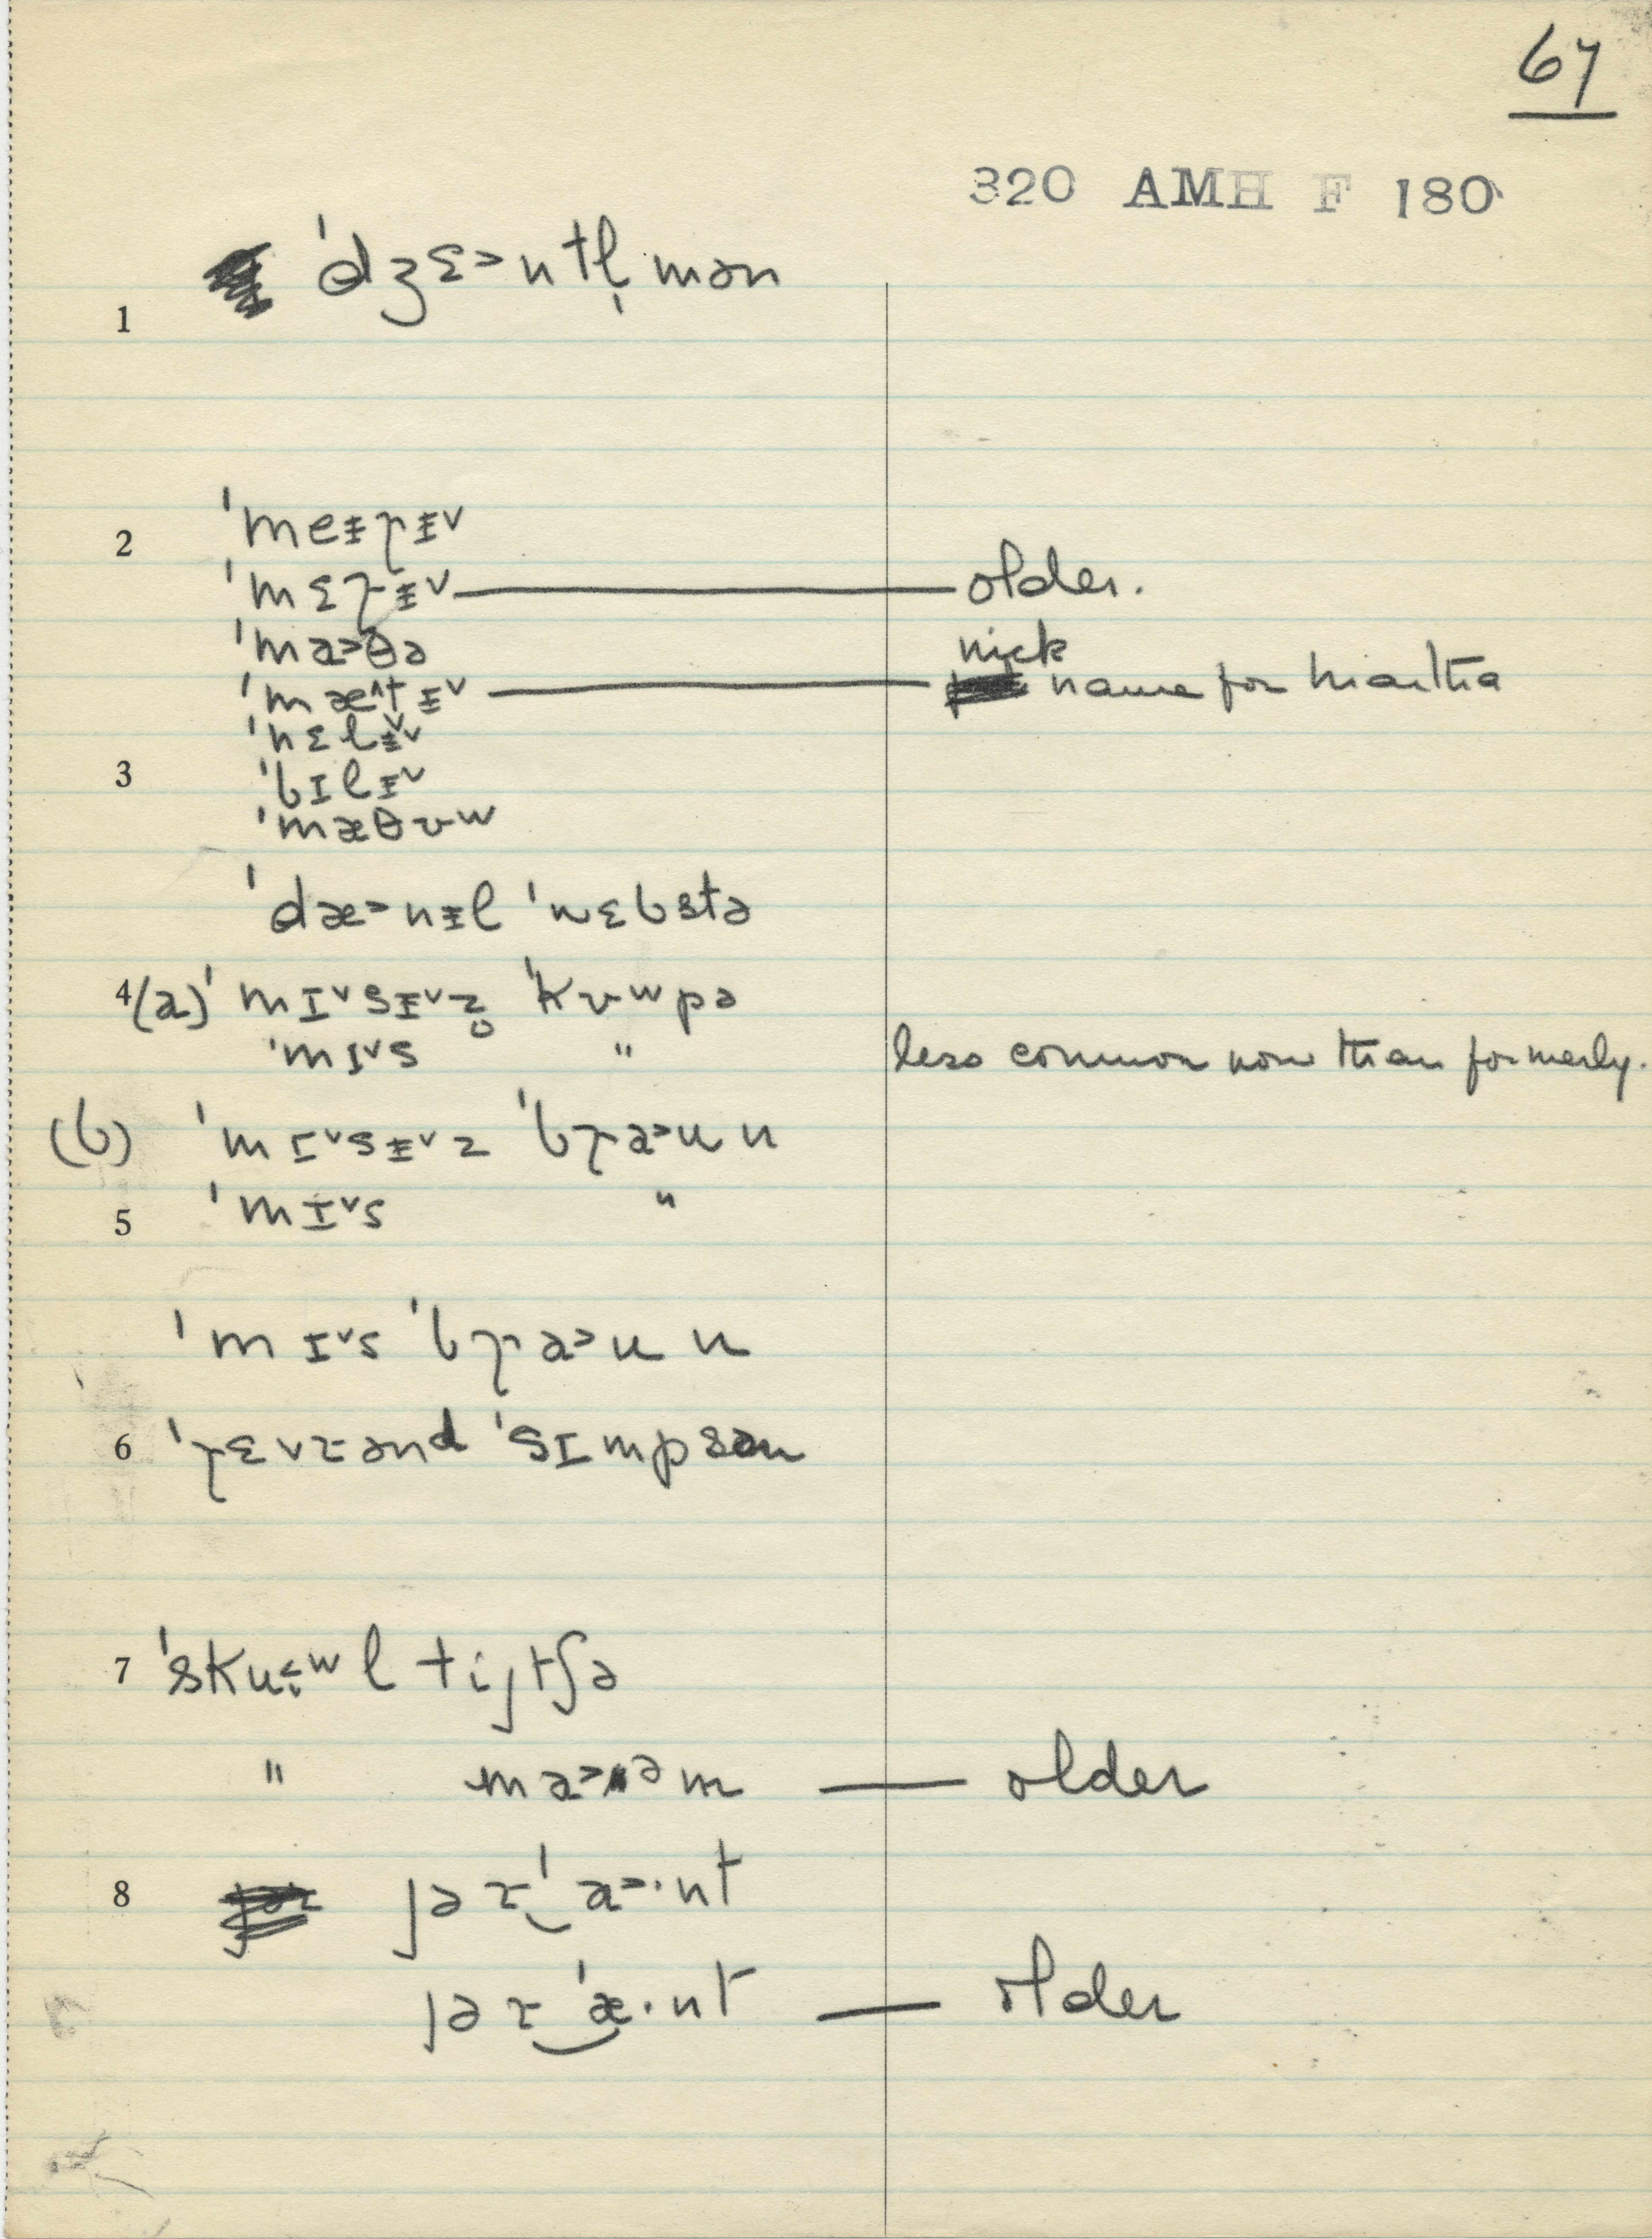 67
320 AMH F 180
1 ˈdʒɛ˃ntl̩mən
2 ˈmeᵻɽᵻ˅
ˈmɛɽᵻ˅ — older.
ˈma˃θə
ˈmæ˄tᵻ˅ — nick name for Martha
ˈnɛlᵻ˅
3 ˈbɪlᵻ˅
ˈmæθʊw
ˈdæ˃nᵻl ˈwɛbstə
4 (a) ˈmɪ˅sᵻ˅z̥ ˈkʊwpə
ˈmɪ˅s " less common now than formerly.
(b) ˈmɪ˅sᵻ˅z ˈbɽa˃un
5 ˈmɪ˅s "
ˈmɪ˅s ˈbɽa˃un
6 ˈɽɛvɪənd ˈsɪmpsən
7 ˈsku˂˅wl tijtʃə
" ma˃əm — older
8 jəɪ‿ˈa˃·nt
jəɪ‿ˈæ·nt — older